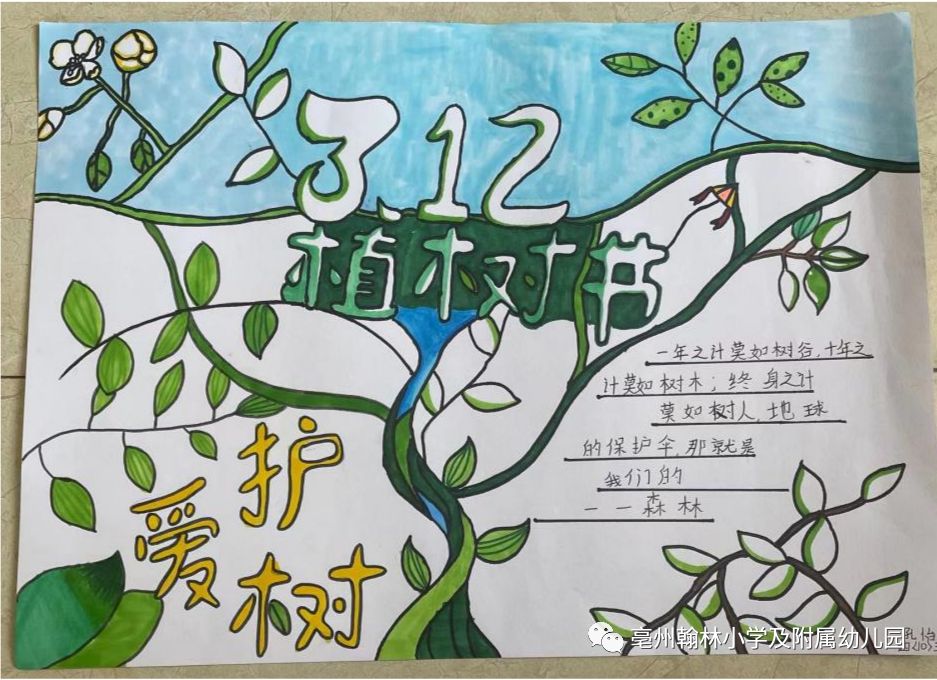 3.12
植树节
一年之计莫如树谷,十年之
计莫如树木;终身之计
莫如树人,地球
的保护伞,那就是
我们的
——森林
爱护
树
亳州翰林小学及附属幼儿园